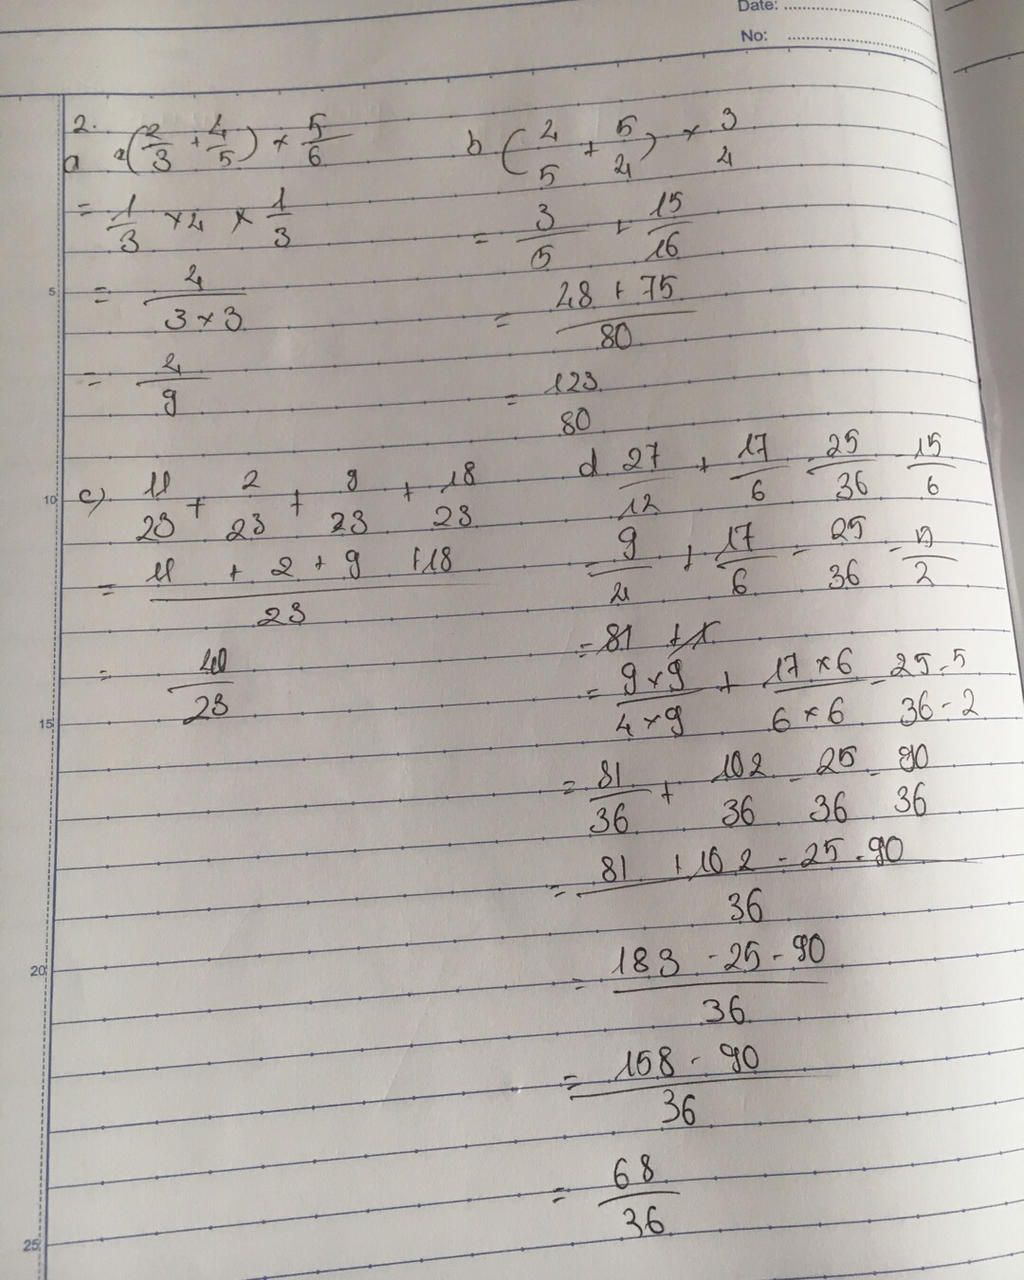 Date:
No:
2.
a (2/3 + 4/5) × 5/6
= 1/3 × 4 × 1/3
= 4/(3 × 3)
= 4/9
b (4/5 + 5/4) × 3/4
= 3/5 + 15/16
= (48 + 75)/80
= 123/80
c) 11/23 + 2/23 + 9/23 + 18/23
= (11 + 2 + 9 + 18)/23
= 40/23
d 27/12 + 17/6 - 25/36 - 15/6
= 9/4 + 17/6 - 25/36 - 5/2
= 81 +
= (9 × 9)/(4 × 9) + (17 × 6)/(6 × 6) - 25/36 - 5/2
= 81/36 + 102/36 - 25/36 - 90/36
= (81 + 102 - 25 - 90)/36
= (183 - 25 - 90)/36
= (158 - 90)/36
= 68/36
5
10
15
20
25